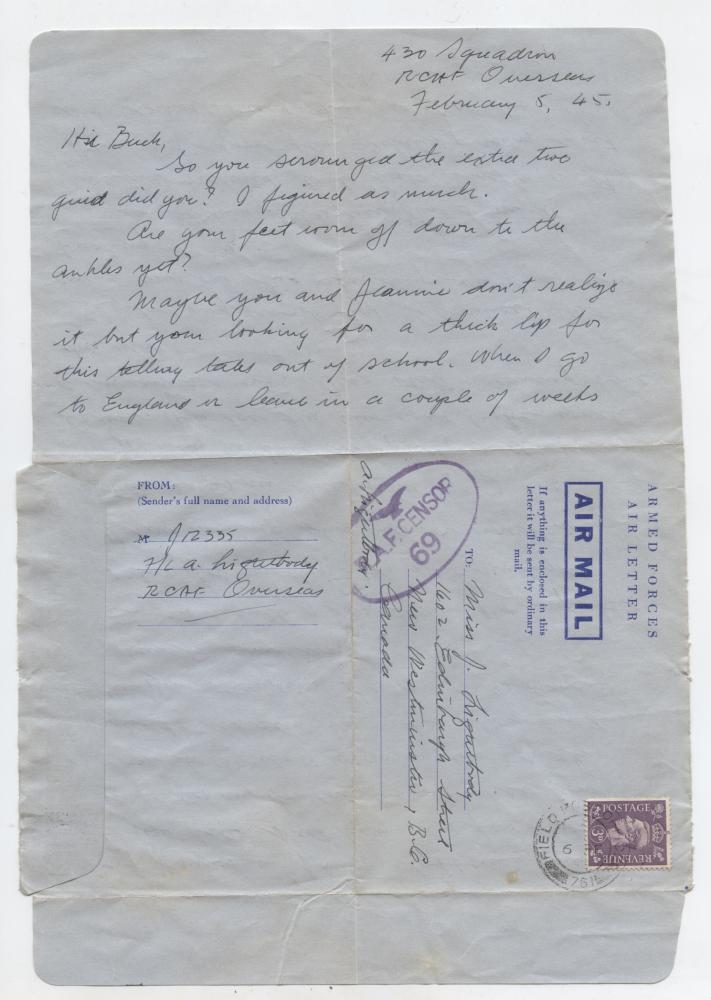 430 Squadron
RCAF Overseas
February 5, 45.
Buck,
So you scrounged the extra two
quid did you? I figured as much.
Are your feet worn off down to the
ankles yet?
Maybe you and Jeannie don't realize
it but your looking for a thick lip for
this telling tales out of school. When I go
to England on leave in a couple of weeks
FROM:
(Sender's full name and address)
J12335
F/L A. Lightbody
RCAF Overseas
ARMED FORCES
AIR LETTER
AIR MAIL
If anything is enclosed in this
letter it will be sent by ordinary
mail.
TO: Miss J. Lightbody
1602 Edinburgh Street
New Westminster, B.C.
Canada
A.F. CENSOR
69
A Lightbody.
POSTAGE
3D
REVENUE
FIELD
6